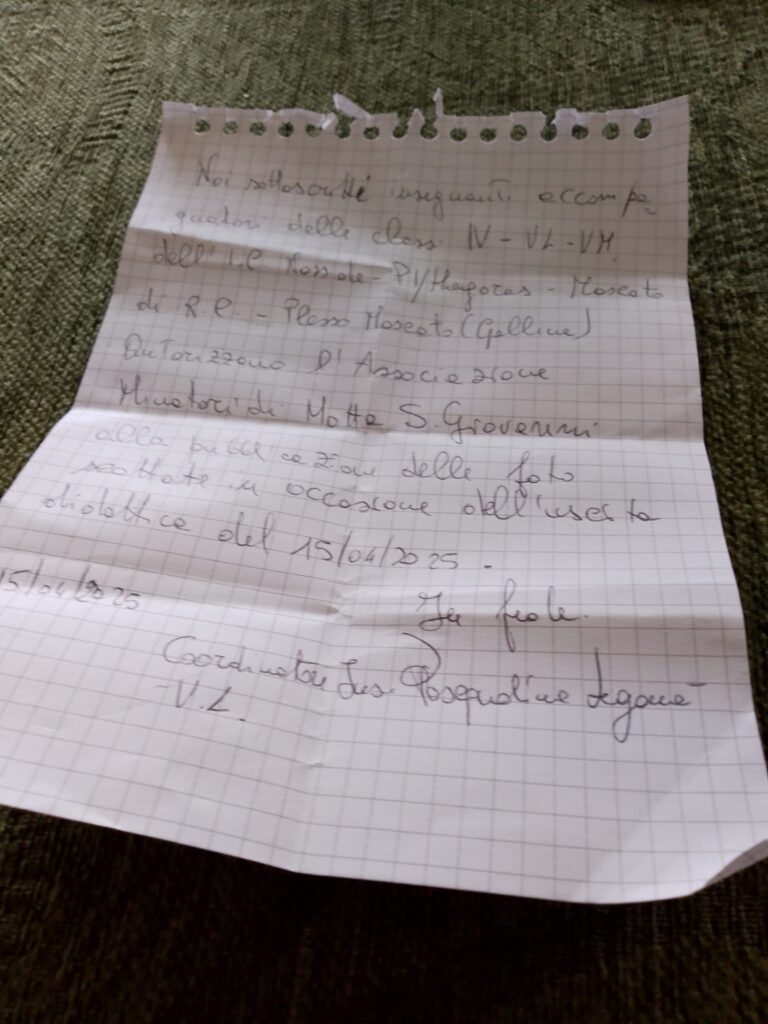 Noi sottoscritti insegnanti accompa=
gnatori delle class IV - VL - VM
dell'I.C Nosside - Pythagoras - Moscato
di R.C. - Plesso Moscato (Gallina)
Autorizzano l'Associazione
Minatori di Motta S. Giovanni
alla pubblicazione delle foto
scattate in occasione dell'uscita
didattica del 15/04/2025.
15/04/2025
In fede
Coordinatore Ins. Pasqualina
V.L.